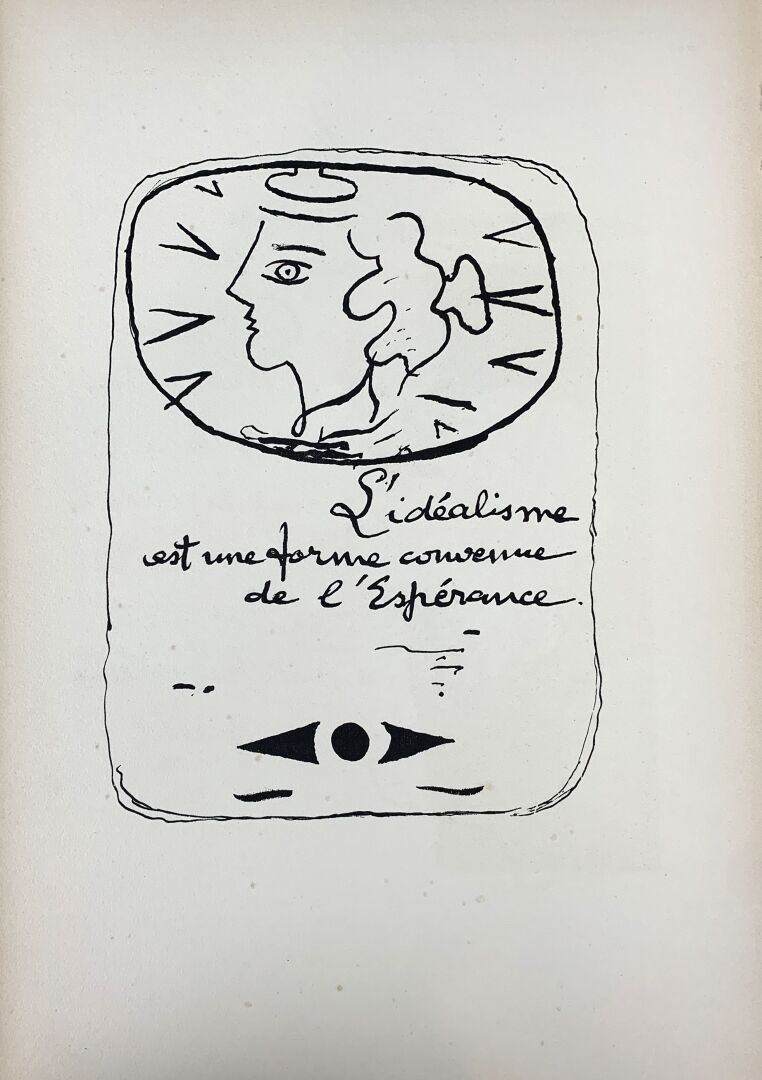 L'idéalisme
est une forme convenue
de l'Espérance.